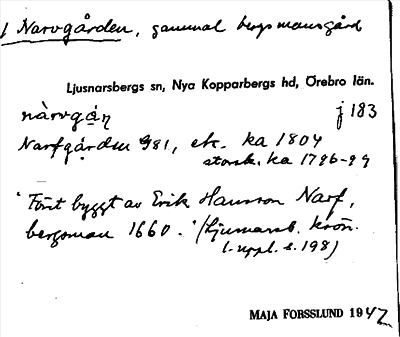 1 Narvgården, gammal bergsmansgård
Ljusnarsbergs sn, Nya Kopparbergs hd, Örebro län.
nàrvgạ́ṇ j 183
Narfgården 981, ek. ka 1804
storsk. ka 1796-99
"Först byggt av Erik Hansson Narf,
bergsman 1660." (Ljusnarsb. krön.
1. uppl. s. 198)
MAJA FORSSLUND 1942